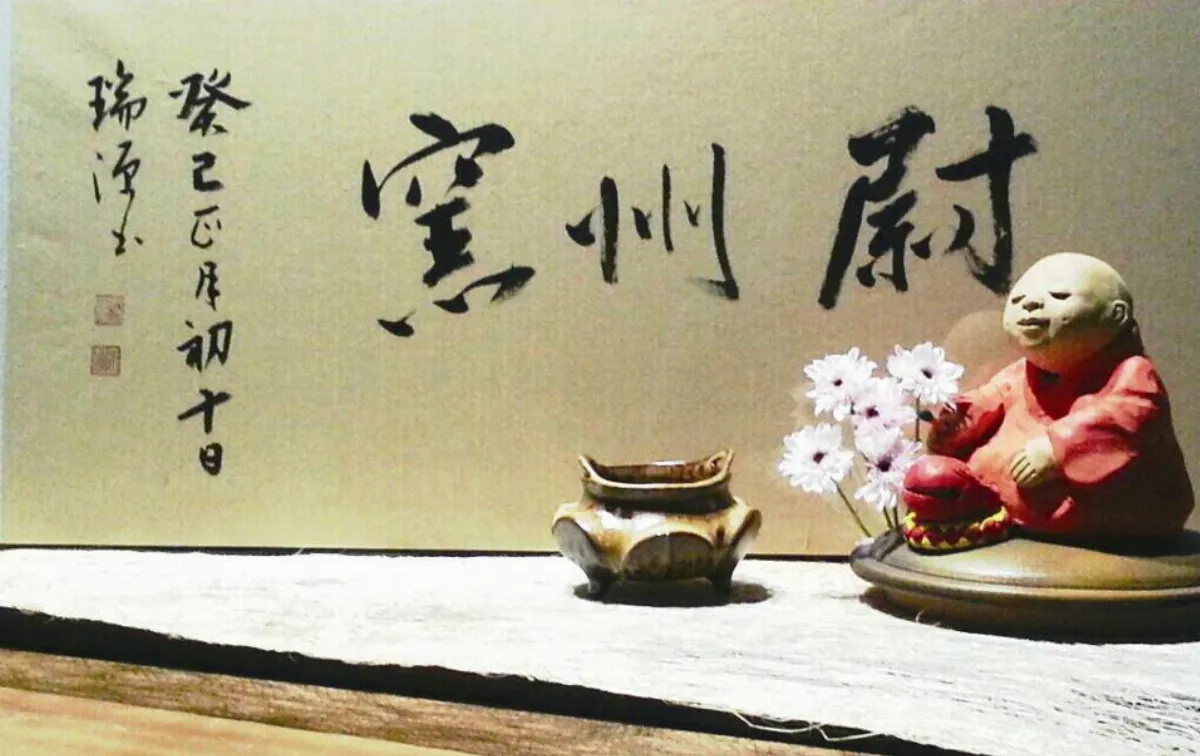 尉州窯
癸巳正月初十日
瑞源书